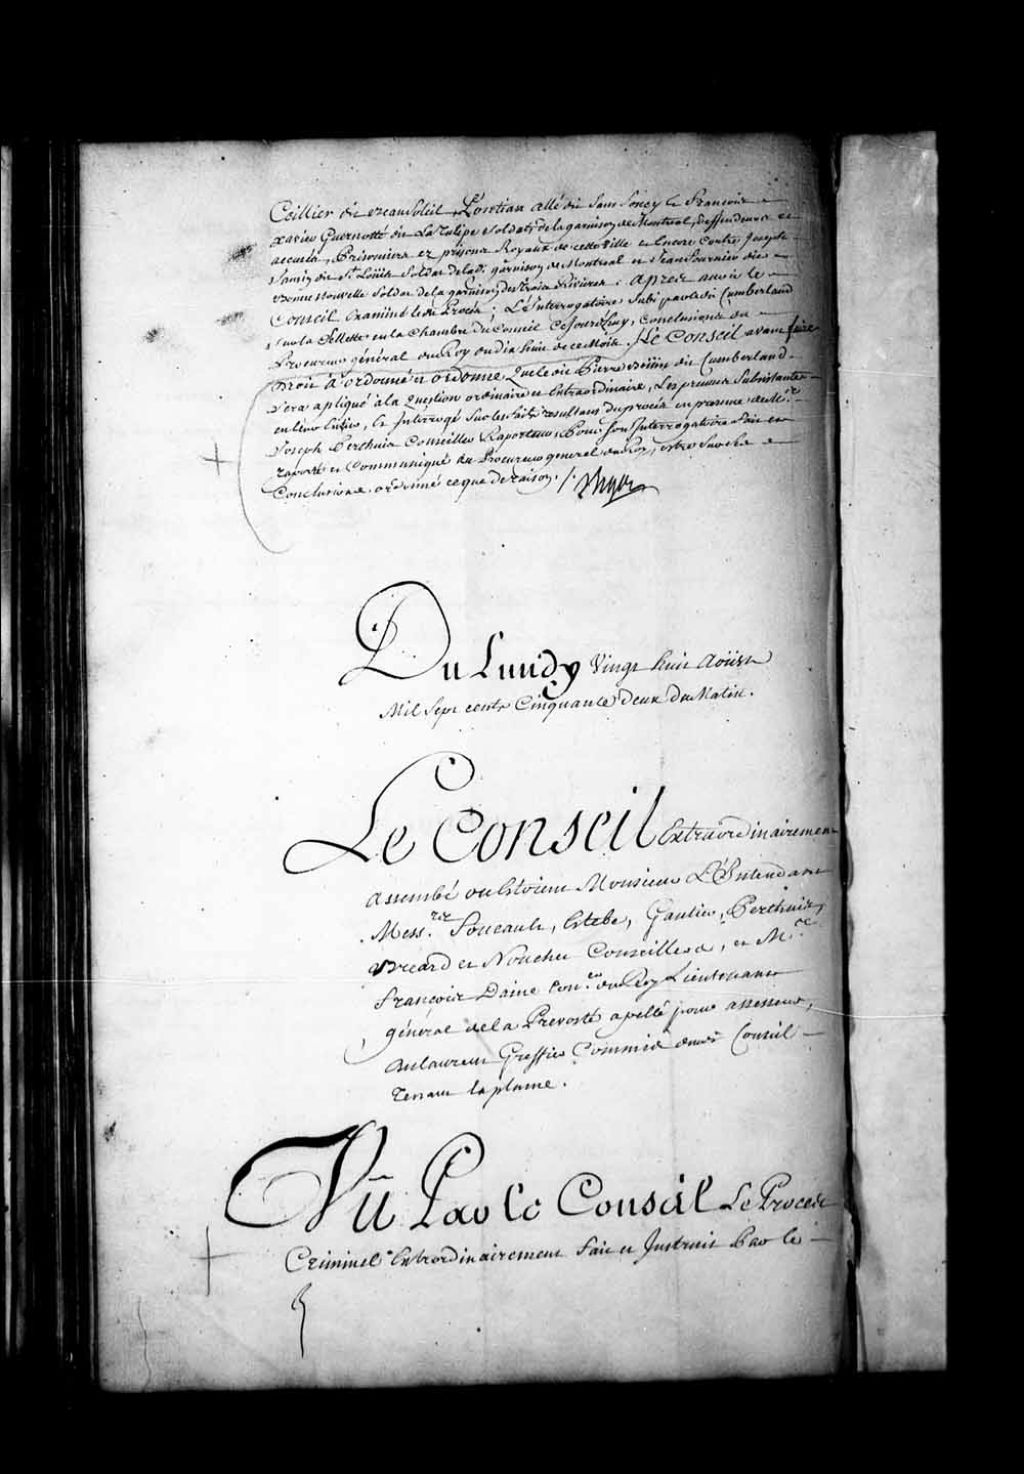 Ceillier dit Beausoleil, allé dit Sans Soucy le François
Xavier Guernotté dit La Tulipe Soldats de la garnison de Montreal, deffendeurs et
accusés, Prisoniers ez prisons Royaux de cette Ville et Encore Contre Joseph
dit St. Loüis Soldat de lad. garnison de Montreal et Jean Fournier dit
Soldat de la garnison des trois Rivieres. Apres avoir le
Conseil Examiné led. Procés; L'Interrogatoire Subi par led. Cumberland
sur la Sellette en la Chambre du Conseil Cejourdhuy, Conclusions du
Procureur général du Roy du dix huit de ce Mois. Le Conseil avant faire
Droit à ordonné et ordonne que led. Pierre dit Cumberland
sera apliqué à la Question ordinaire et Extraordinaire, Les preuves Subsistantes
en leur Entier, Et Interrogé Sur les faits resultans du procés en presence de Me.
Joseph Perthuis Conseiller Raporteur, Pour son Interrogatoire fait et
raporté et Communiqué au Procureur general du Roy, estre sur ses
Conclusions ordonné ce que de raison.
Du Lundy Vingt huit Aoüst
Mil Sept cents Cinquante deux du Matin.
Le Conseil Extraordinairement
assemblé ou Estoient Monsieur L'Intendant
Mess.rs Foucault, Estebe, Gaultier, Perthuis,
Breard et Nouchet Conseillers, et Me.
François Daine Con.er du Roy Lieutenant
général de la Prevosté apellé pour assesseur,
Greffier Commis audit Conseil
Tenant la plume.
Vû Par le Conseil Le Procés
Criminel Extraordinairement fait et Instruit Par le